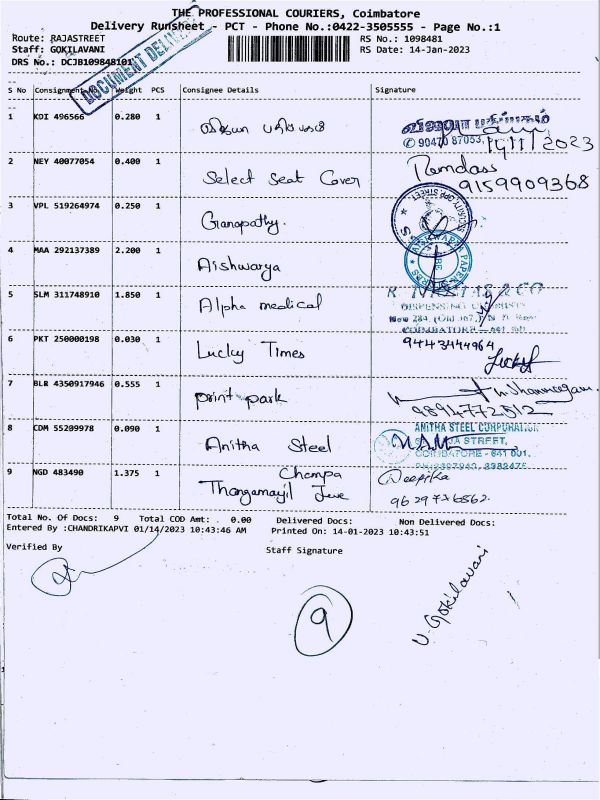 THE PROFESSIONAL COURIERS, Coimbatore
Delivery Runsheet - PCT - Phone No.:0422-3505555 - Page No.:1
Route: RAJASTREET
RS No.: 1098481
Staff: GOKILAVANI
RS Date: 14-Jan-2023
DRS No.: DCJB109848101
DOCUMENT DELIV
S No Consignment No Weight PCS Consignee Details Signature
1 KDI 496566 0.280 1
© 90470 87053, 14/1/2023
2 NEY 40077054 0.400 1 Select Seat Cover Ramdass
9159909368
3 VPL 519264974 0.250 1 Ganapathy.
4 MAA 292137389 2.200 1 Aishwarya
5 SLM 311748910 1.850 1 Alpha medical
COIMBATORE - 641 001
6 PKT 250000198 0.030 1 Lucky Times 9443444964
Lucky
7 BLR 4350917946 0.555 1 print park
9894772512
8 CDM 55209978 0.090 1 Anitha Steel ANITHA STEEL CORPORATION
STREET,
COIMBATORE - 641 001.
9 NGD 483490 1.375 1 Champa
Thangamayil Jwe Deepika
Total No. Of Docs: 9 Total COD Amt: 0.00 Delivered Docs: Non Delivered Docs:
Entered By :CHANDRIKAPVI 01/14/2023 10:43:46 AM Printed On: 14-01-2023 10:43:51
Verified By Staff Signature
9
V. Gokilavani